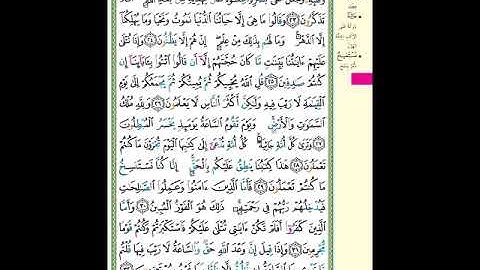 تَذَكَّرُونَ ﴿٢٣﴾ وَقَالُوا۟ مَا هِىَ إِلَّا حَيَاتُنَا ٱلدُّنْيَا نَمُوتُ وَنَحْيَا وَمَا يُهْلِكُنَآ
إِلَّا ٱلدَّهْرُ ۚ وَمَا لَهُم بِذَٰلِكَ مِنْ عِلْمٍ ۖ إِنْ هُمْ إِلَّا يَظُنُّونَ ﴿٢٤﴾ وَإِذَا تُتْلَىٰ
عَلَيْهِمْ ءَايَـٰتُنَا بَيِّنَـٰتٍ مَّا كَانَ حُجَّتَهُمْ إِلَّآ أَن قَالُوا۟ ٱئْتُوا۟ بِـَٔابَآئِنَآ إِن
كُنتُمْ صَـٰدِقِينَ ﴿٢٥﴾ قُلِ ٱللَّهُ يُحْيِيكُمْ ثُمَّ يُمِيتُكُمْ ثُمَّ يَجْمَعُكُمْ إِلَىٰ يَوْمِ
ٱلْقِيَـٰمَةِ لَا رَيْبَ فِيهِ وَلَـٰكِنَّ أَكْثَرَ ٱلنَّاسِ لَا يَعْلَمُونَ ﴿٢٦﴾ وَلِلَّهِ مُلْكُ
ٱلسَّمَـٰوَٰتِ وَٱلْأَرْضِ ۚ وَيَوْمَ تَقُومُ ٱلسَّاعَةُ يَوْمَئِذٍ يَخْسَرُ ٱلْمُبْطِلُونَ
﴿٢٧﴾ وَتَرَىٰ كُلَّ أُمَّةٍ جَاثِيَةً ۚ كُلُّ أُمَّةٍ تُدْعَىٰٓ إِلَىٰ كِتَـٰبِهَا ٱلْيَوْمَ تُجْزَوْنَ مَا كُنتُمْ
تَعْمَلُونَ ﴿٢٨﴾ هَـٰذَا كِتَـٰبُنَا يَنطِقُ عَلَيْكُم بِٱلْحَقِّ ۚ إِنَّا كُنَّا نَسْتَنسِخُ
مَا كُنتُمْ تَعْمَلُونَ ﴿٢٩﴾ فَأَمَّا ٱلَّذِينَ ءَامَنُوا۟ وَعَمِلُوا۟ ٱلصَّـٰلِحَـٰتِ
فَيُدْخِلُهُمْ رَبُّهُمْ فِى رَحْمَتِهِۦ ۚ ذَٰلِكَ هُوَ ٱلْفَوْزُ ٱلْمُبِينُ ﴿٣٠﴾ وَأَمَّا
ٱلَّذِينَ كَفَرُوٓا۟ أَفَلَمْ تَكُنْ ءَايَـٰتِى تُتْلَىٰ عَلَيْكُمْ فَٱسْتَكْبَرْتُمْ وَكُنتُمْ قَوْمًا
مُّجْرِمِينَ ﴿٣١﴾ وَإِذَا قِيلَ إِنَّ وَعْدَ ٱللَّهِ حَقٌّ وَٱلسَّاعَةُ لَا رَيْبَ فِيهَا قُلْتُم